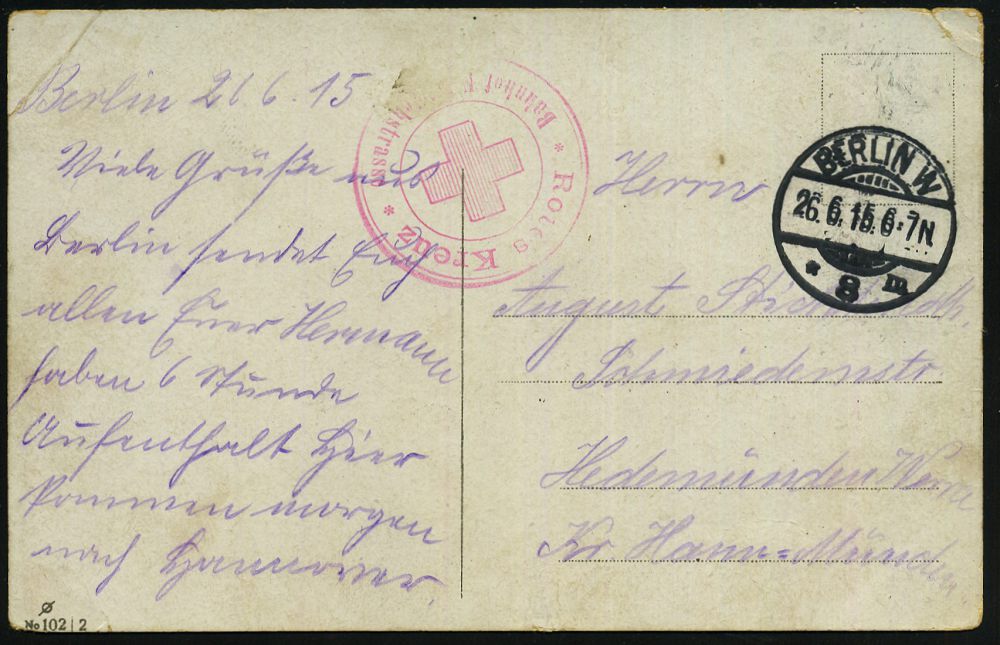 Berlin 26 6. 15
Viele Grüße aus
Berlin sendet Euch
allen Euer Hermann
haben 6 Stunde
Aufenthalt Hier
kommen morgen
nach Hannover.
No 102 | 2
* Rotes Kreuz *
Bahnhof
BERLIN W
26. 6. 15. 6-7 N.
* 8 m
Herrn
August
Schmiedemstr.
Hedemünden Werra
Kr. Hann=Münden